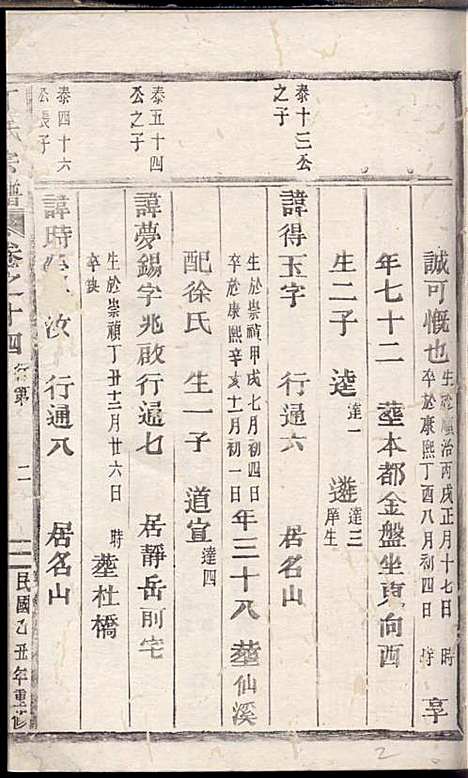 誠可慨也 生於順治丙戌正月十七日 時
卒於康熙丁酉八月初四日 時 享
年七十二 塟本都金盤坐東向酉
生二子 逵達一 遴達三庠生
泰十三公之子
諱得玉字 行通六 居名山
生於崇禎甲戌七月初四日
卒於康熙辛亥十一月初一日 年三十八 塟仙溪
配徐氏 生一子 道宣達四
泰五十四公之子
諱夢錫字兆啟行通七 居靜岳前宅
生於崇禎丁丑十二月廿六日 時
卒缺 塟杜橋
泰四十六公長子
諱時 汝 行通八 居名山
宗譜 卷之十四 行第 二 民國乙丑年重修